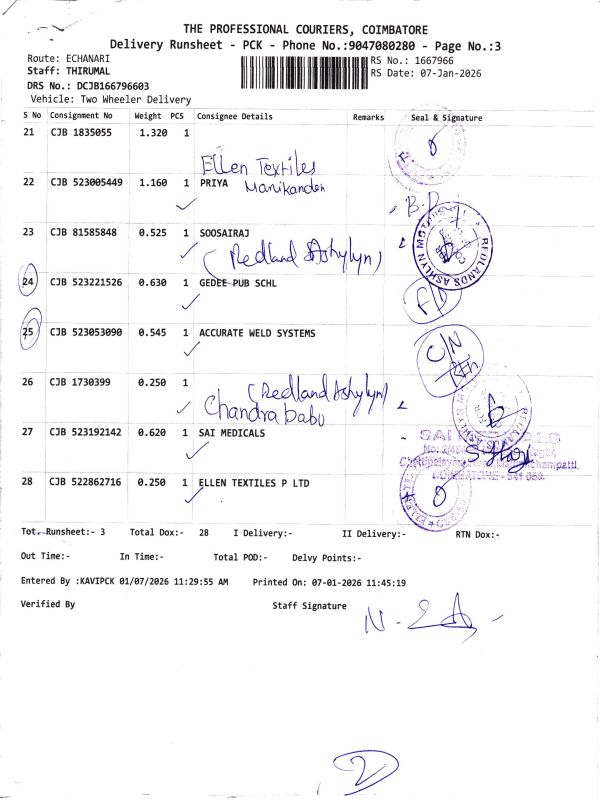 THE PROFESSIONAL COURIERS, COIMBATORE
Delivery Runsheet - PCK - Phone No.:9047080280 - Page No.:3
Route: ECHANARI
Staff: THIRUMAL
RS No.: 1667966
RS Date: 07-Jan-2026
DRS No.: DCJB166796603
Vehicle: Two Wheeler Delivery
S No Consignment No Weight PCS Consignee Details Remarks Seal & Signature
21 CJB 1835055 1.320 1
Ellen Textiles
22 CJB 523005449 1.160 1 PRIYA Manikanden
23 CJB 81585848 0.525 1 SOOSAIRAJ
(Redland Ashylyn)
REDLANDS ASHLYN MOTORS
24 CJB 523221526 0.630 1 GEDEE PUB SCHL
25 CJB 523053090 0.545 1 ACCURATE WELD SYSTEMS
C/N
26 CJB 1730399 0.250 1 (Redland Ashylyn)
Chandra babu
27 CJB 523192142 0.620 1 SAI MEDICALS
28 CJB 522862716 0.250 1 ELLEN TEXTILES P LTD
Tot. Runsheet:- 3 Total Dox:- 28 I Delivery:- II Delivery:- RTN Dox:-
Out Time:- In Time:- Total POD:- Delvy Points:-
Entered By :KAVIPCK 01/07/2026 11:29:55 AM Printed On: 07-01-2026 11:45:19
Verified By Staff Signature
2